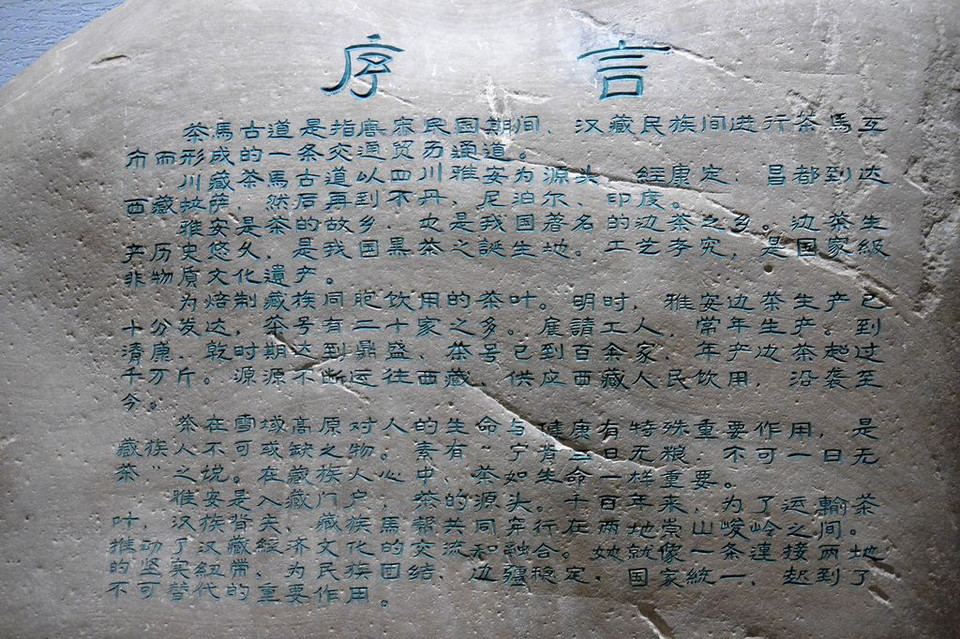 序言
茶馬古道是指唐宋民国期间、汉藏民族间进行茶馬互
市而形成的一条交通贸易通道。
川藏茶馬古道以四川雅安为源头，經康定，昌都到达
西藏拉萨，然后再到不丹，尼泊尔、印度。
雅安是茶的故乡，也是我国著名的边茶之乡。边茶生
产历史悠久，是我国黑茶之誕生地。工艺考究，是国家級
非物质文化遺产。
为焙制藏族同胞饮用的茶叶。明时，雅安边茶生产已
十分发达，茶号有二十家之多。雇請工人，常年生产。到
清康、乾时期达到鼎盛、茶号已到百余家，年产边茶超过
千万斤。源源不断运往西藏，供应西藏人民饮用，沿袭至
今。
茶在雪域高原对人的生命与健康有特殊重要作用，是
藏族人不可或缺之物。素有“宁肯三日无粮，不可一日无
茶”之说。在藏族人心中，茶如生命一样重要。
雅安是入藏门户，茶的源头。千百年来，为了运輸茶
叶，汉族背夫，藏族馬帮共同穿行在两地崇山峻岭之间。
推动了汉藏經济文化的交流和融合。她就像一条連接两地
的坚实紐带，为民族团结，边疆稳定，国家統一，起到了
不可替代的重要作用。